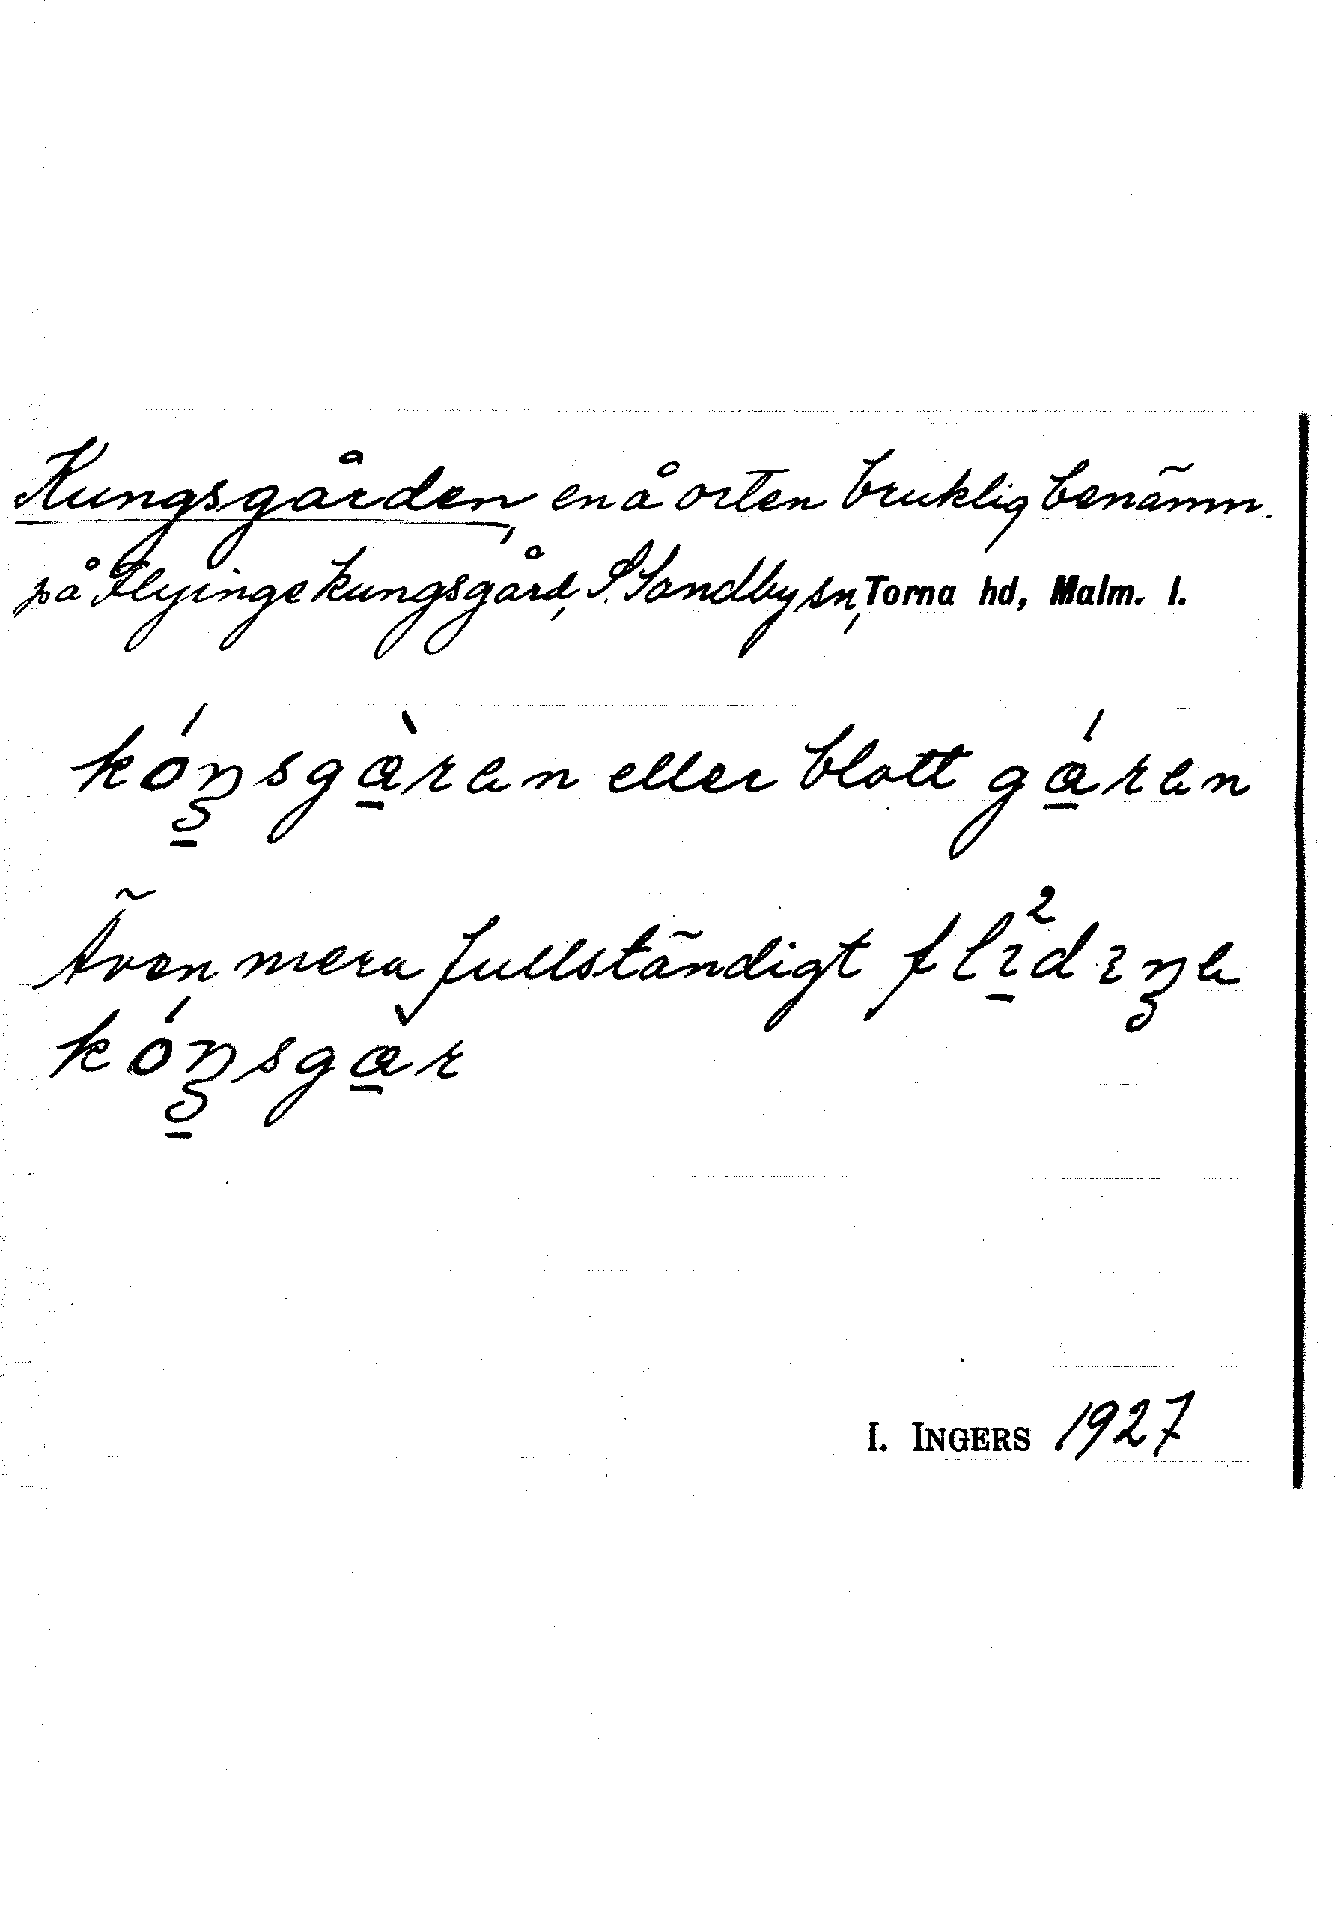 Kungsgården, en å orten bruklig benämn.
på Flyinge kungsgård, S. Sandby sn, Torna hd, Malm. l.
kóŋsgà̱ran eller blott gá̱ran
Även mera fullständigt fli̱²dıŋa
kóŋsgà̱r
I. INGERS 1927